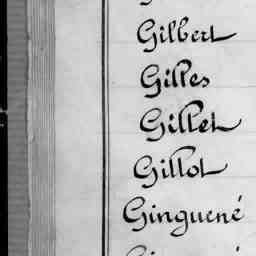 Gilbert
Gilles
Gillet
Gillot
Ginguené